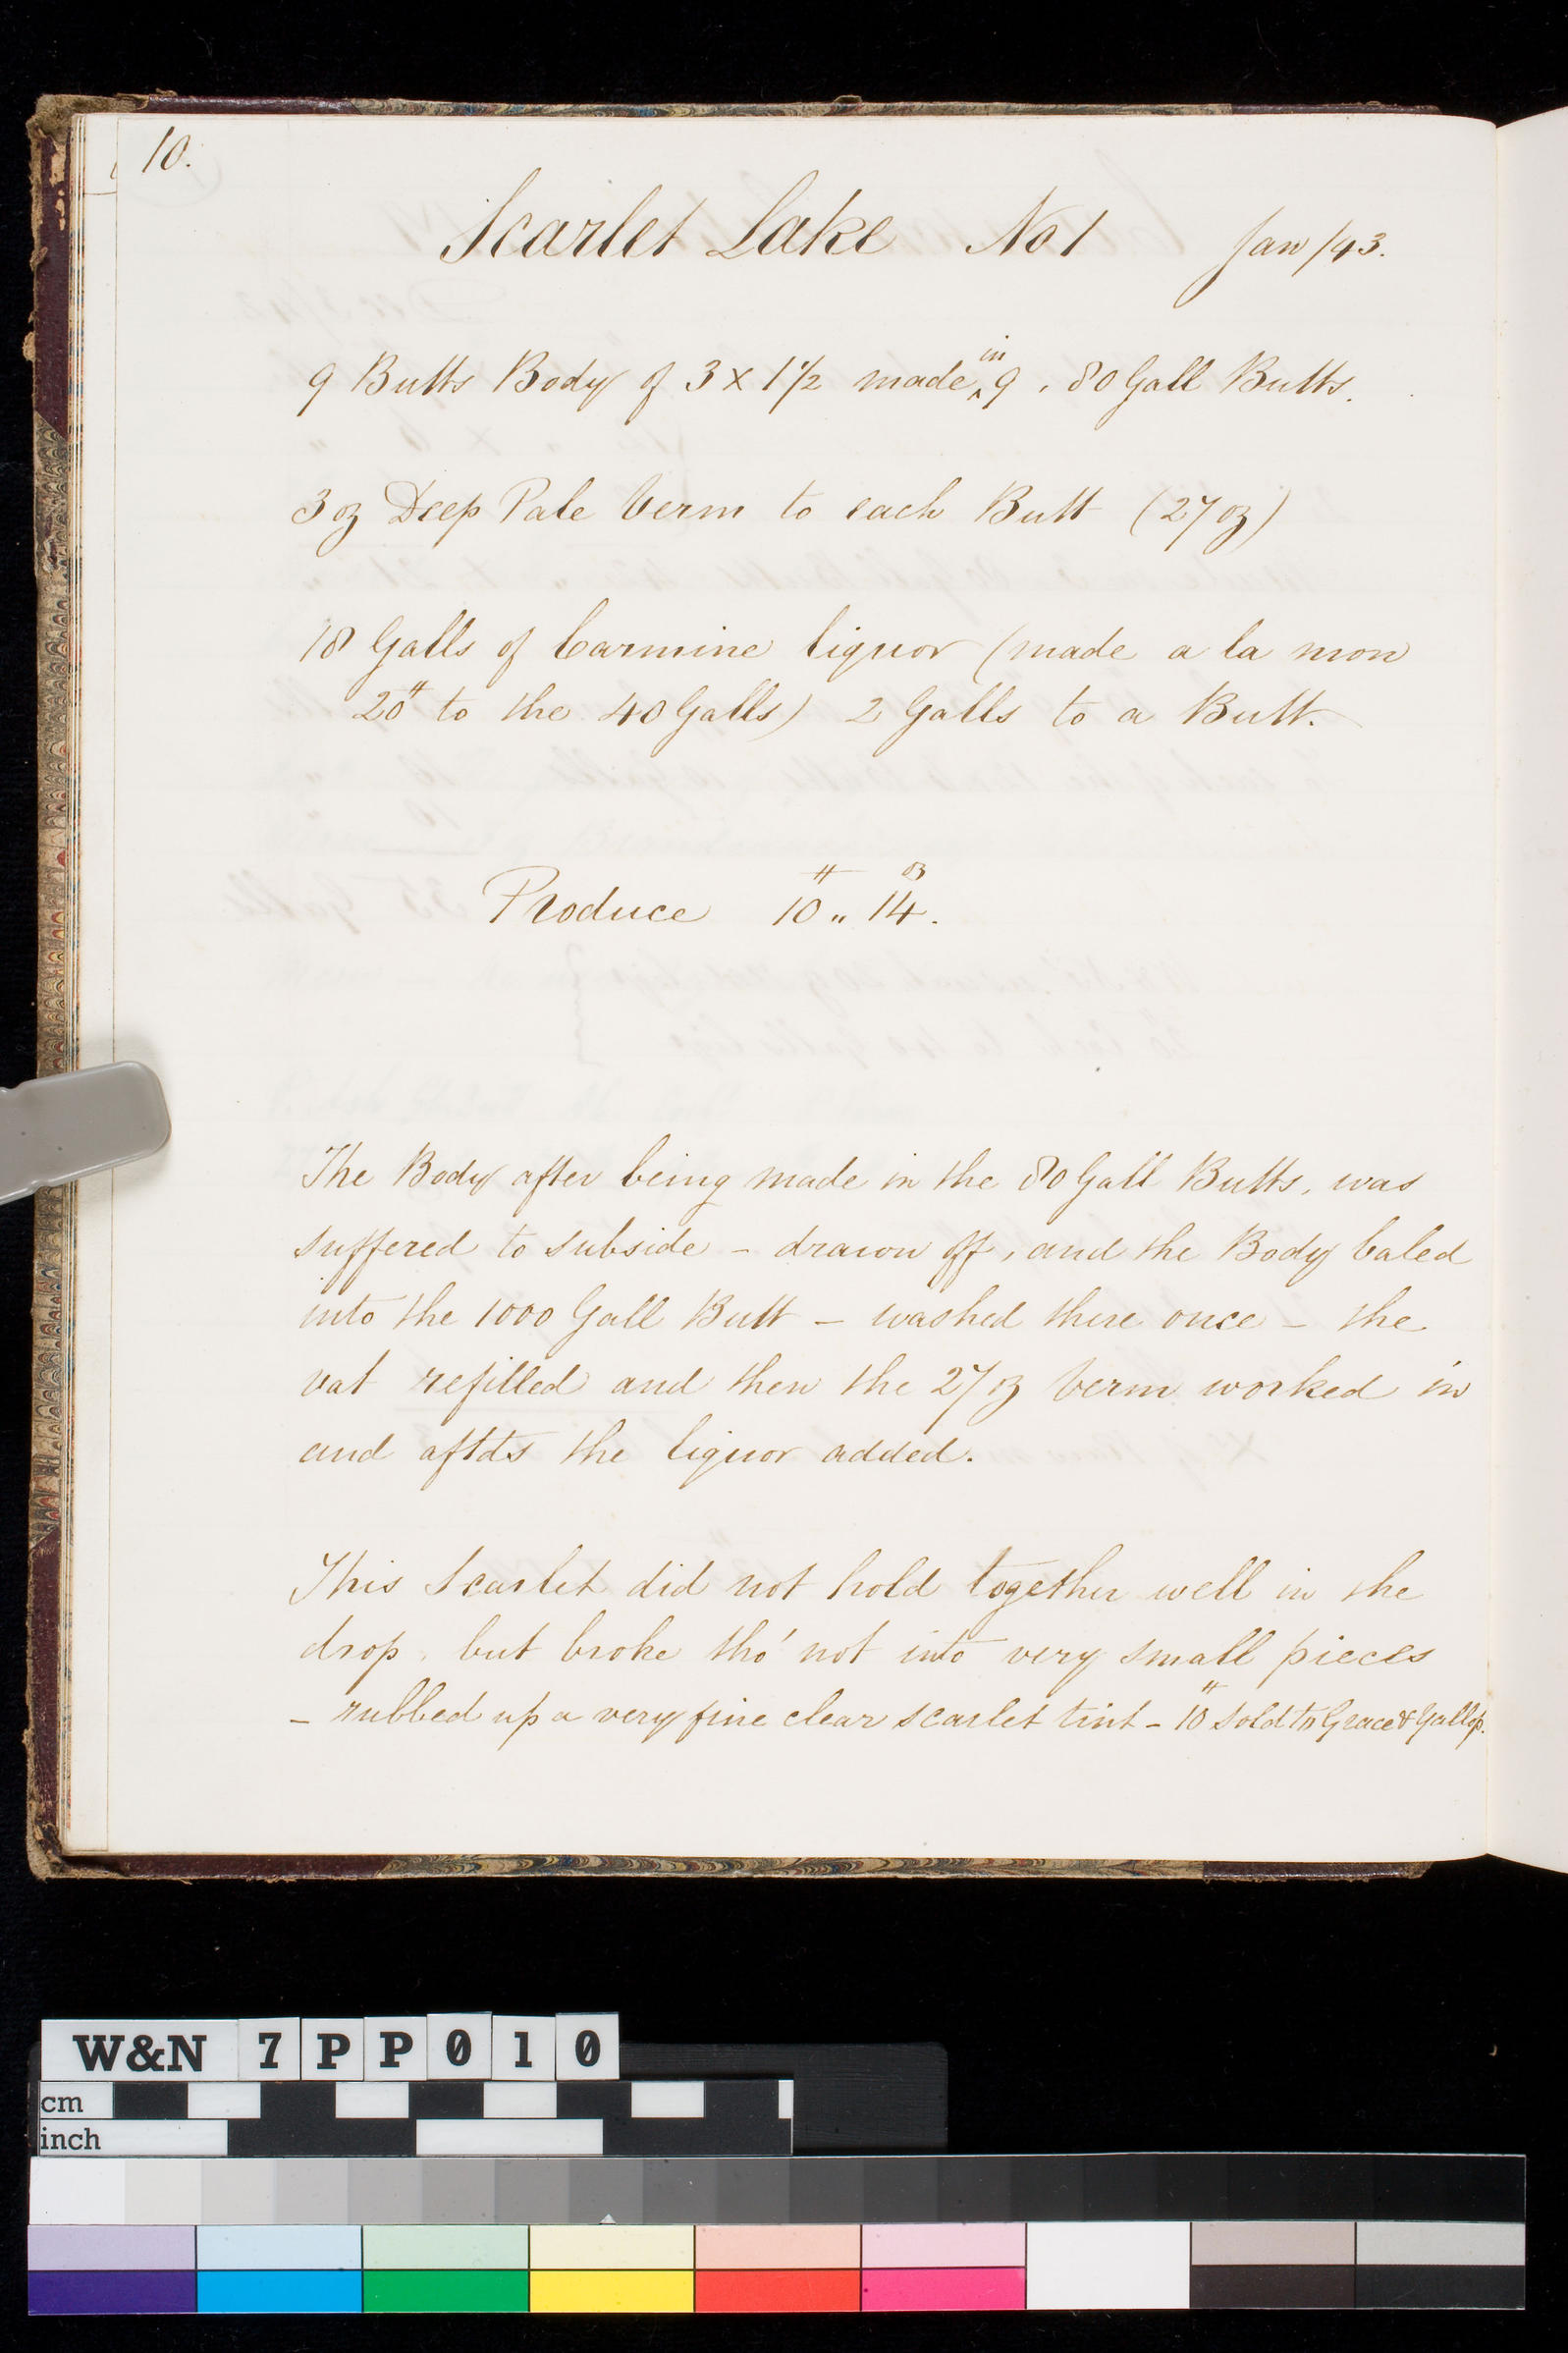 10.
Scarlet Lake No 1 Jan /43.
9 Butts Body of 3 x 1½ made in 9, 80 Gall Butts.
3 oz Deep Pale Verm to each Butt (27 oz)
18 Galls of Carmine liquor (made a la mon
20# to the 40 Galls) 2 Galls to a Butt.
# oz
Produce 10 „ 14.
The Body after being made in the 80 Gall Butts, was
suffered to subside – drawn off, and the Body baled
into the 1000 Gall Butt – washed there once – the
vat refilled and then the 27 oz Verm worked in
and aftds the liquor added.
This Scarlet did not hold together well in the
drop, but broke tho' not into very small pieces
– rubbed up a very fine clear scarlet tint – 10# sold to Grace & Gallop.
W&N 7PP010
cm
inch